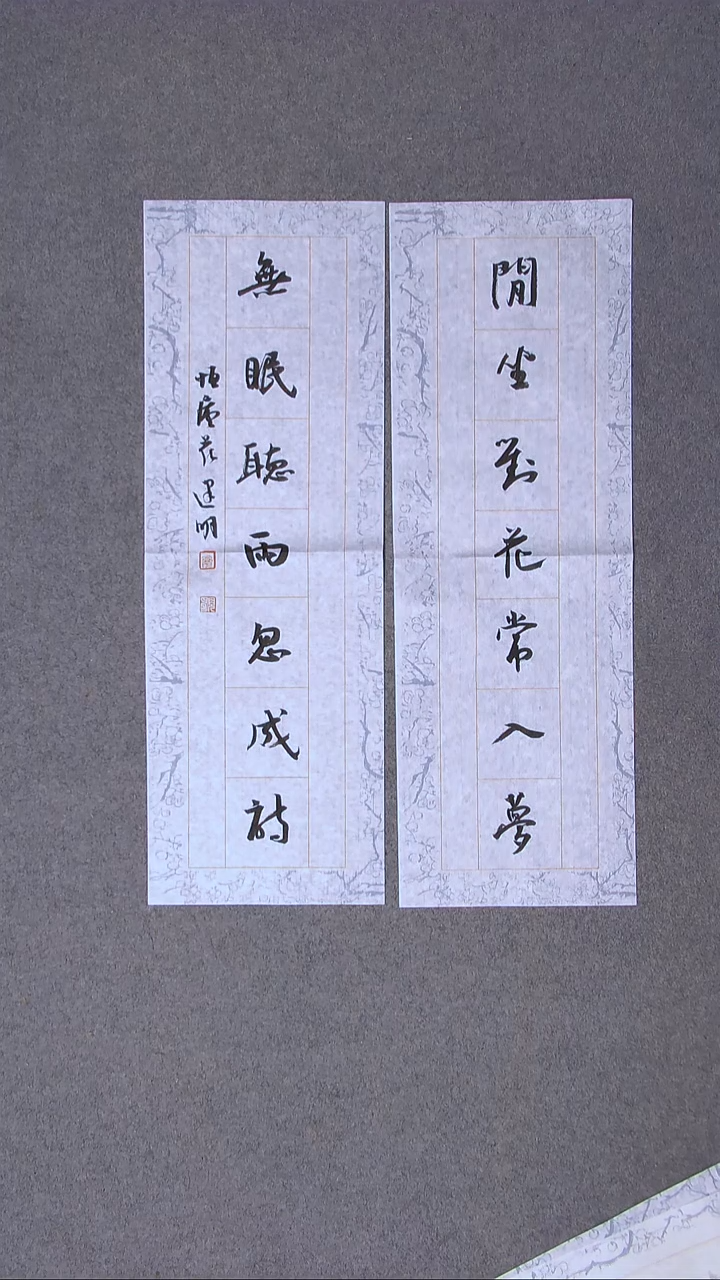 閒坐對花常入夢
無眠聽雨忽成詩
恒庵范建明